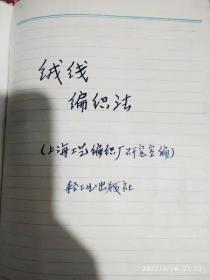 绒线
编织法
(上海工艺编织厂研究室编)
轻工业出版社
2022/3/16 21:23